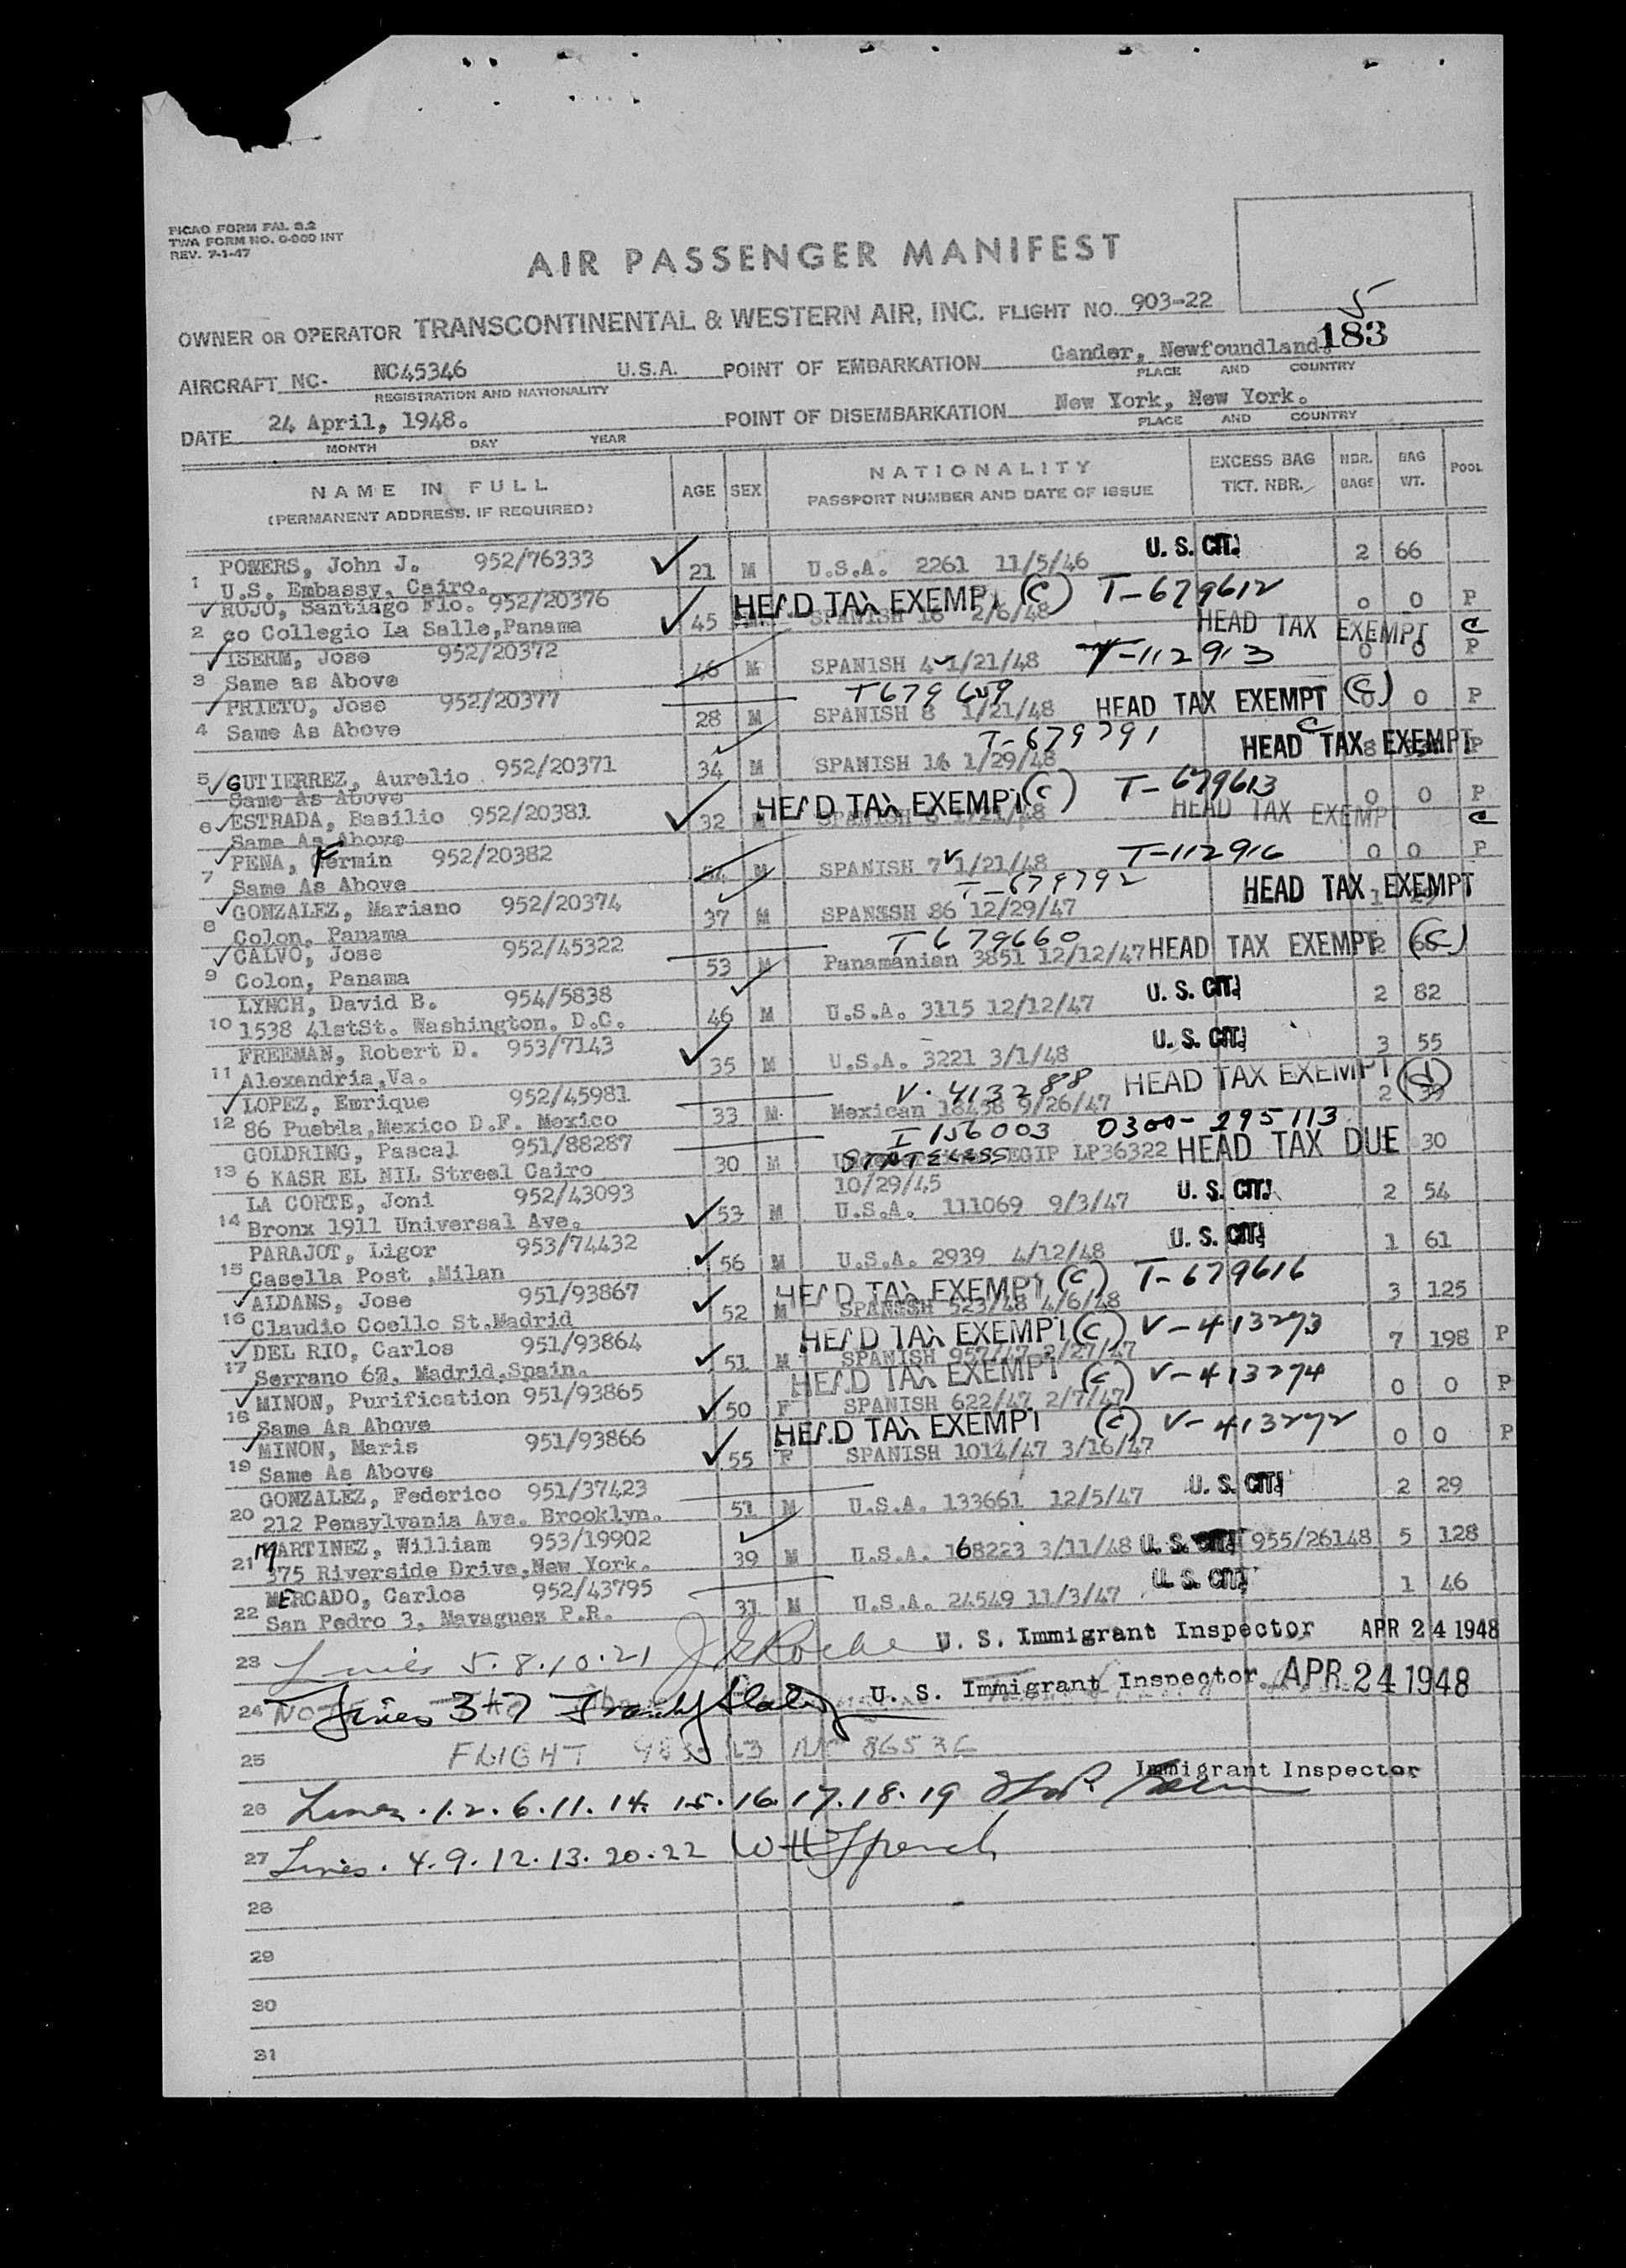 PICAO FORM FAL 8.2
TWA FORM NO. O-000 INT
REV. 7-1-47
AIR PASSENGER MANIFEST
5
OWNER OR OPERATOR TRANSCONTINENTAL & WESTERN AIR, INC. FLIGHT NO. 903-22
183
AIRCRAFT NC- NC45346 U.S.A. POINT OF EMBARKATION Gander, Newfoundland.
REGISTRATION AND NATIONALITY PLACE AND COUNTRY
DATE 24 April, 1948. POINT OF DISEMBARKATION New York, New York.
MONTH DAY YEAR PLACE AND COUNTRY
NAME IN FULL AGE SEX NATIONALITY EXCESS BAG NBR. BAG POOL
(PERMANENT ADDRESS, IF REQUIRED) PASSPORT NUMBER AND DATE OF ISSUE TKT. NBR. BAGS WT.
POWERS, John J. 952/76333 ✓ 21 M U.S.A. 2261 11/5/46 U. S. CIT. 2 66
1 U.S. Embassy, Cairo.
✓ ROJO, Santiago Flo. 952/20376 ✓ 45 SPANISH 16 2/6/48 HEAD TAX EXEMPT (C) T-679612 0 0 P
2 co Collegio La Salle,Panama HEAD TAX EXEMPT C
✓ ISERM, Jose 952/20372 46 M SPANISH 4 1/21/48 T-112913 0 0 P
3 Same as Above
✓ PRIETO, Jose 952/20377 28 M SPANISH 8 1/21/48 T679609 HEAD TAX EXEMPT (C) 0 0 P
4 Same As Above
T-679791
5 ✓ GUTIERREZ, Aurelio 952/20371 34 M SPANISH 16 1/29/48 HEAD TAX EXEMPT C 8 P
Same As Above
6 ✓ ESTRADA, Basilio 952/20381 ✓ 32 M HEAD TAX EXEMPT (C) T-679613 0 0 P
Same As Above HEAD TAX EXEMPT C
✓ PENA, Fermin 952/20382 M SPANISH 7 1/21/48 T-112916 0 0 P
7 Same As Above
✓ GONZALEZ, Mariano 952/20374 37 M SPANISH 86 12/29/47 T-679792 HEAD TAX EXEMPT 1
8 Colon, Panama
✓ CALVO, Jose 952/45322 53 M Panamanian 3851 12/12/47 T679660 HEAD TAX EXEMPT 2 (C)
9 Colon, Panama
LYNCH, David B. 954/5838 46 M U.S.A. 3115 12/12/47 U. S. CIT. 2 82
10 1538 41stSt. Washington. D.C.
FREEMAN, Robert D. 953/7143 ✓ 35 M U.S.A. 3221 3/1/48 U. S. CIT. 3 55
11 Alexandria,Va.
✓ LOPEZ, Enrique 952/45981 33 M Mexican 18458 9/26/47 V-413288 HEAD TAX EXEMPT 2 39
12 86 Puebla,Mexico D.F. Mexico
GOLDRING, Pascal 951/88287 30 M STATELESS EGIP LP36322 I 156003 0300-295113 HEAD TAX DUE 30
13 6 KASR EL NIL Streel Cairo 10/29/45
LA CORTE, Joni 952/43093 ✓ 53 M U.S.A. 111069 9/3/47 U. S. CIT. 2 54
14 Bronx 1911 Universal Ave.
PARAJOT, Ligor 953/74432 ✓ 56 M U.S.A. 2939 4/12/48 U. S. CIT. 1 61
15 Casella Post ,Milan
✓ ALDANS, Jose 951/93867 ✓ 52 M SPANISH 523/48 4/6/48 HEAD TAX EXEMPT (C) T-679616 3 125
16 Claudio Coello St.Madrid
✓ DEL RIO, Carlos 951/93864 ✓ 51 M SPANISH 957/47 2/27/47 HEAD TAX EXEMPT (C) V-413273 7 198 P
17 Serrano 62, Madrid,Spain.
✓ MINON, Purification 951/93865 ✓ 50 F SPANISH 622/47 2/7/47 HEAD TAX EXEMPT (C) V-413274 0 0 P
18 Same As Above
✓ MINON, Maris 951/93866 ✓ 55 F SPANISH 1014/47 3/16/47 HEAD TAX EXEMPT (C) V-413272 0 0 P
19 Same As Above
GONZALEZ, Federico 951/37423 51 M U.S.A. 133661 12/5/47 U. S. CIT. 2 29
20 212 Pensylvania Ave. Brooklyn.
MARTINEZ, William 953/19902 39 M U.S.A. 168223 3/11/48 U. S. CIT. 955/26148 5 128
21 375 Riverside Drive,New York.
MERCADO, Carlos 952/43795 31 M U.S.A. 24549 11/3/47 U. S. CIT. 1 46
22 San Pedro 3, Mavaguez P.R.
23 Lines 5.8.10.21 U. S. Immigrant Inspector APR 24 1948
24 Lines 3+7 U. S. Immigrant Inspector APR 24 1948
25 FLIGHT
Immigrant Inspector
26 Lines. 1.2.6.11.14. 15.16.17.18.19
27 Lines. 4.9.12.13.20.22
28
29
30
31